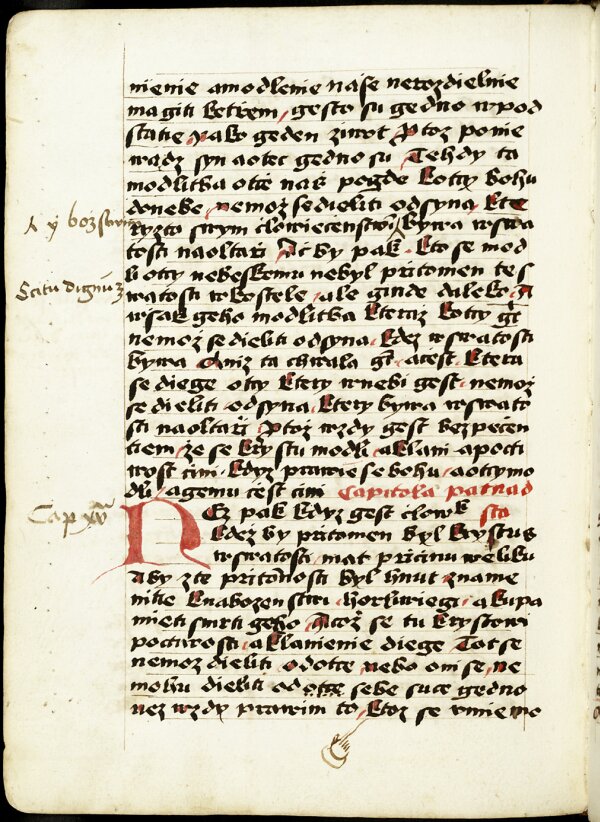 nienie amodlenie nasse nerozdielnie
magiti kteřem, gesto su gedno wpod
statie yako geden ziwot Ptoz ponie
wadz syn aotec gedno su Tehdy ta
modlitba otče nass pogde kotcy bohu
donebe nemoz sedieliti odsyna kte
ryzto swym člowiečenstwi bywa wswa
tosti naoltarzi Ač by pak kto se mod
li otcy nebeskemu nebyl přitomen te s
watosti wkostele ale ginde daleko a
wssak geho modlitba kteraz kotcy gt
nemoz sedieliti odsyna kdez wswatosti
bywa Aniz ta chwala gt a čest ktera
se diege otcy ktery wnebi gest nemoz
se dieliti odsyna ktery bywa wswato
sti naoltarzi Ptoz wzdy gest bezpečen
tiem ze se krystu modli aklani apocti
wost čini kdyz prawie se bohu aotcy mo
dli agemu čest čini Capitola patnad
sta
Cap xv
NEz pak kdyz gest člowěk
kdez by přitomen byl krystus
wswatosti mat přičinu weliku
aby zte přitomnosti byl hnut zname
nitie knabozenstwi horliwiegi akupa
mieti smrti geho Ačož se tu krystowi
poctiwosti aklanienie diege Tot se
nemoz dieliti odotce nebo oni se ne
mohu dieliti od sebe suce gedno
nez wzdy prawim to ktoz se vmie mo